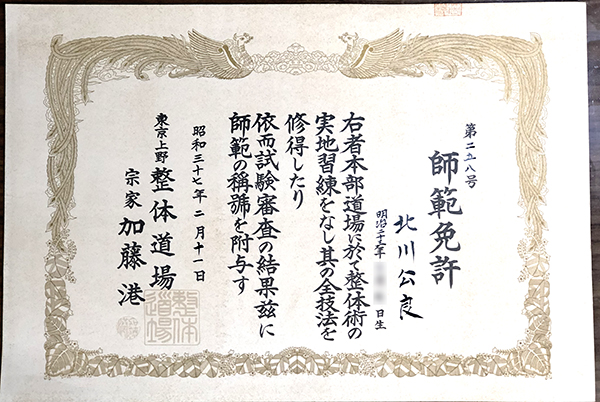 師範免許
第二五八号
北川公良
明治二十三年
日生
右者本部道場に於て整体術の
実地習練をなし其の全技法を
修得したり
依而試験審査の結果兹に
師範の稱號を附与す
昭和三十七年二月十一日
東京上野 整体道場
宗家 加藤 港
整体
道場